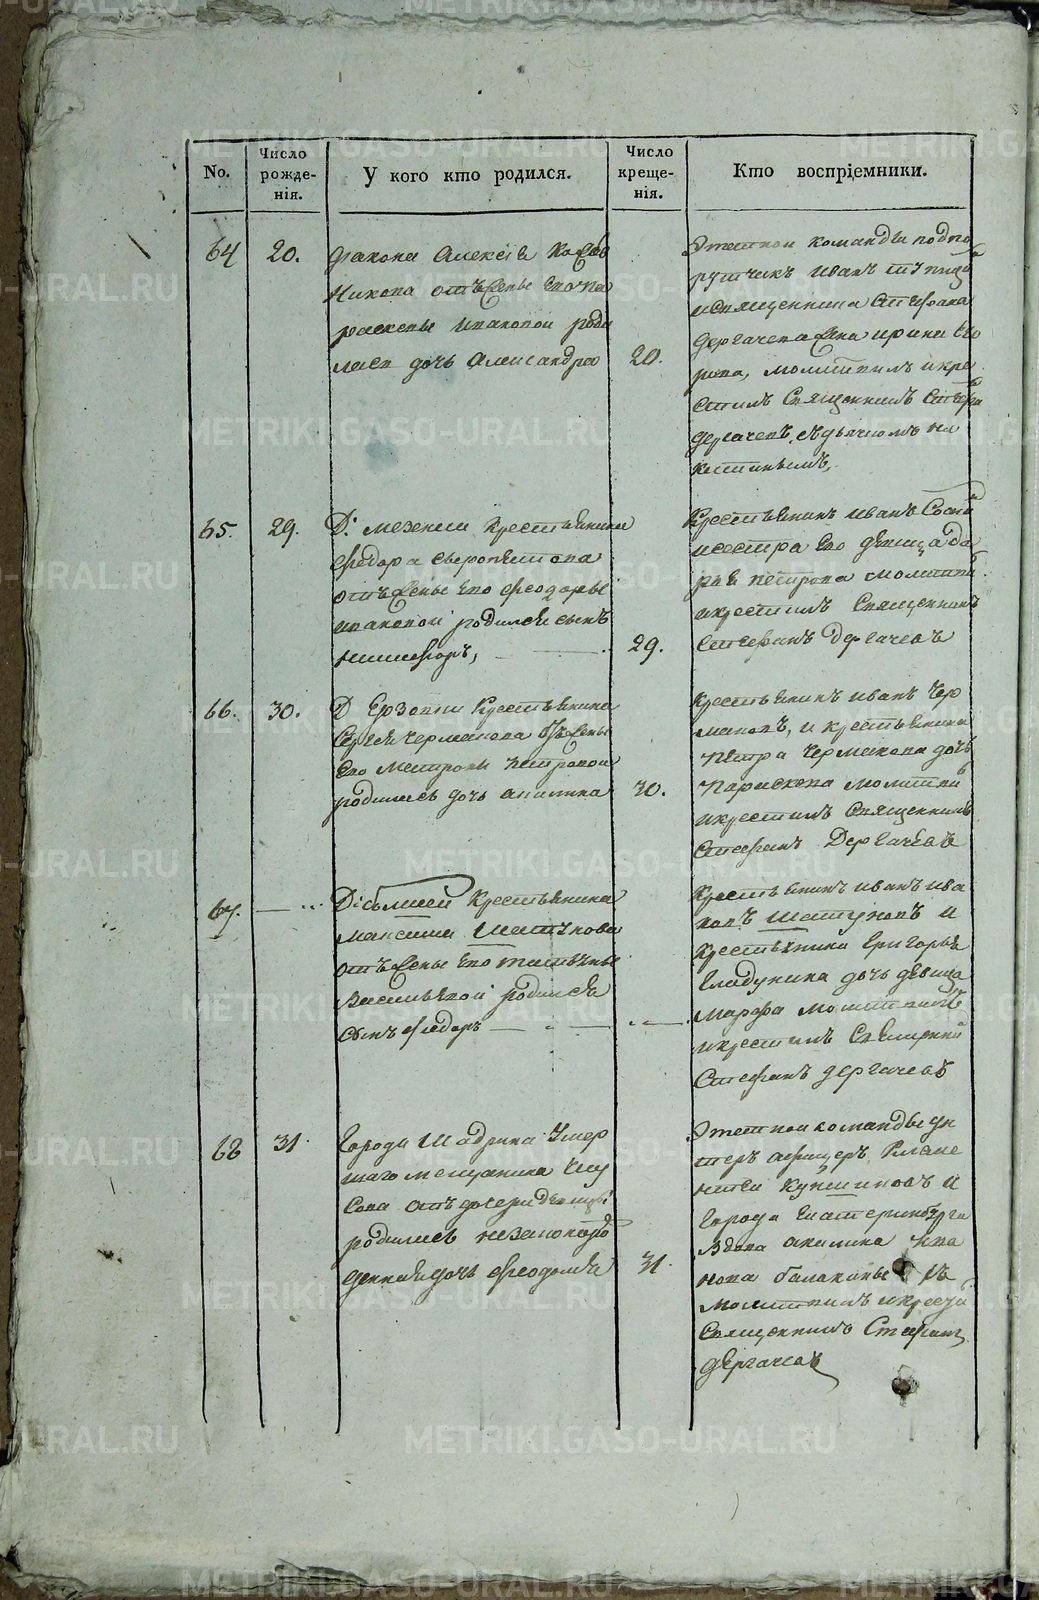 No.
Число рожде-
нія.
У кого кто родился.
Число креще-
нія.
Кто воспріемники.
64
20.
дiакона Алексѣя
никова отъ жены его па
раскевы ивановой роди
лась дочь Александра
20.
Этапной команды подпо
ручикъ иванъ
исвященника Стефана
дергачева жена ирина его
рова, молитвилъ икре
стилъ Священникъ Стефа
дергачевъ, съдьячкомъ ни
китинымъ,
65.
29.
Д: мезенки Крестьянина
Федора сыропятова
отъ жены его феодоры
ивановой родился сынъ
никифоръ,
29.
Крестьянинъ иванъ
исестра его девица да
рья петрова молитви
икрестилъ Священникъ
Стефанъ Дергачевъ
66.
30.
Д Ерзовки Крестьянина
Сергея Чермакова отъ жены
его Матроны петровой
родилась дочь акилина
30.
Крестьянинъ иванъ Чер
маковъ, и крестьянина
петра Чермакова дочь
Параскева молитви
икрестилъ Священникъ
Стефанъ Дергачевъ
67.
Крестьянина
максима Шатунова
отъ жены его татьяны
васильевой родился
сынъ Федоръ
Крестьянинъ иванъ ива
новъ Шатуновъ и
Крестьянина Григорья
Еладунина дочь девица
Марфа молитвилъ
икрестилъ Священни
Стефанъ дергачевъ
68
31
города Шадрина Умер
шаго мещанина
отъ дочери девицы
родилась незаконорож
денная дочь феодосия
31.
Этапной команды ун
теръ афицеръ Клеме
нтей Кукшиновъ и
города Екатеринбурга
вдова акилина ива
нова балакины
молитвилъ икрести
Священникъ Стефанъ
дергачевъ
METRIKI.GASO-URAL.RU